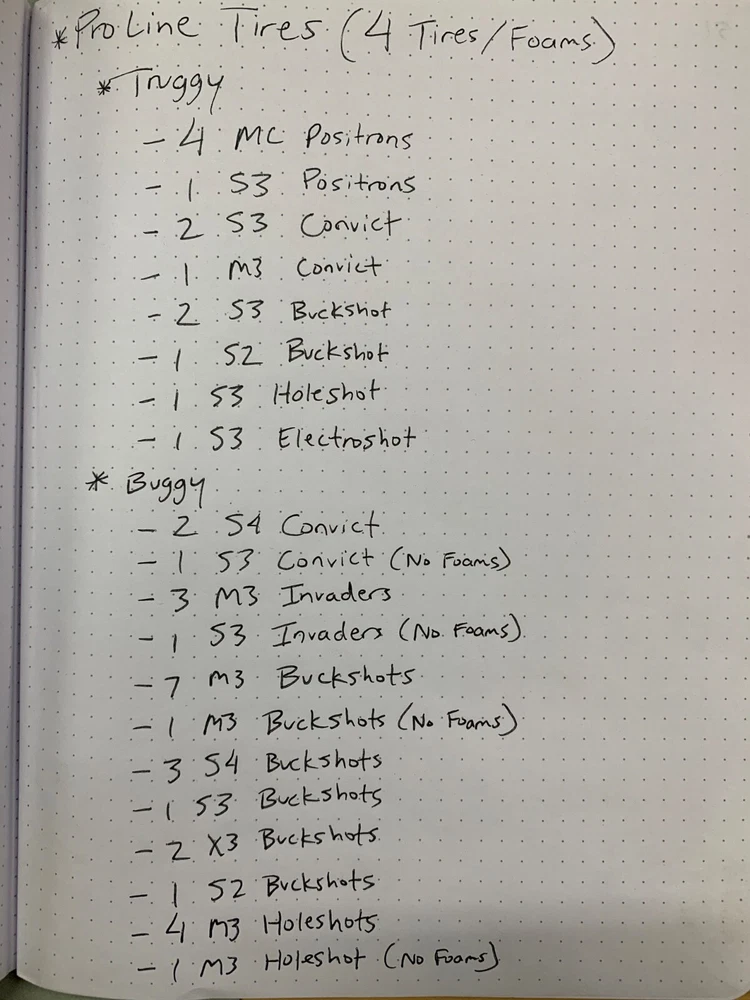 * ProLine Tires (4 Tires/Foams)
* Truggy
- 4 MC Positrons
- 1 S3 Positrons
- 2 S3 Convict
- 1 M3 Convict
- 2 S3 Buckshot
- 1 S2 Buckshot
- 1 S3 Holeshot
- 1 S3 Electroshot
* Buggy
- 2 S4 Convict
- 1 S3 Convict (No Foams)
- 3 M3 Invaders
- 1 S3 Invaders (No Foams)
- 7 M3 Buckshots
- 1 M3 Buckshots (No Foams)
- 3 S4 Buckshots
- 1 S3 Buckshots
- 2 X3 Buckshots
- 1 S2 Buckshots
- 4 M3 Holeshots
- 1 M3 Holeshot (No Foams)